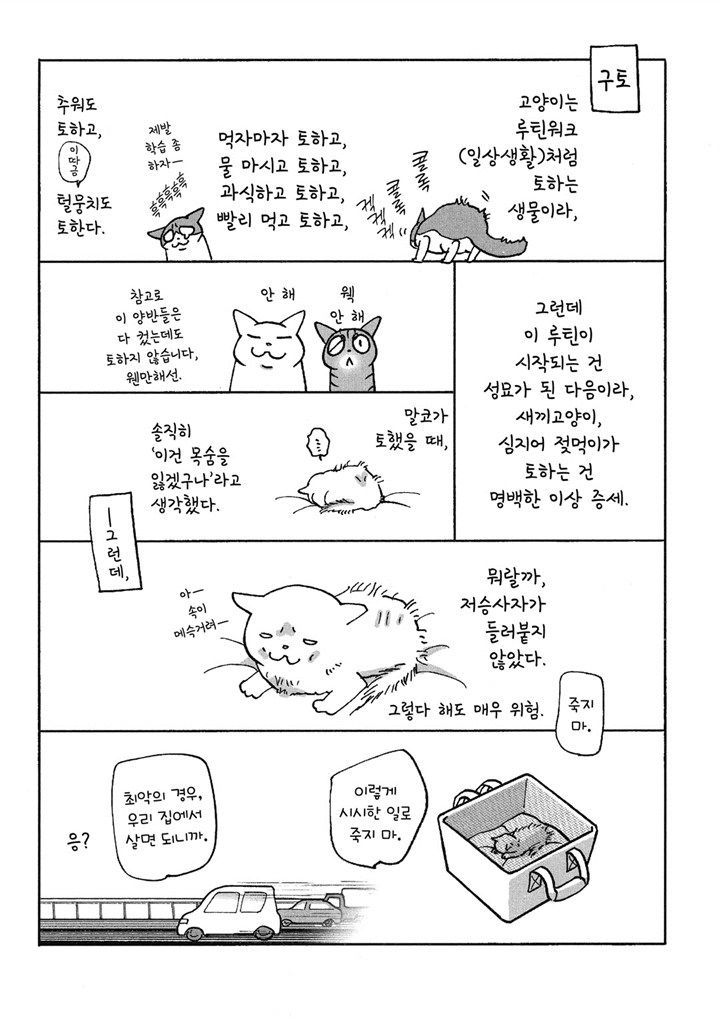 구토
고양이는
루틴워크
(일상생활)처럼
토하는
생물이라,
콜록
콜록
켁
켁켁
먹자마자 토하고,
물 마시고 토하고,
과식하고 토하고,
빨리 먹고 토하고,
제발
학습 좀
하자―
흑흑흑흑흑
추워도
토하고,
이따금
털뭉치도
토한다.
그런데
이 루틴이
시작되는 건
성묘가 된 다음이라,
새끼고양이,
심지어 젖먹이가
토하는 건
명백한 이상 증세.
웩
안 해
안 해
참고로
이 양반들은
다 컸는데도
토하지 않습니다,
웬만해선.
말코가
토했을 때,
솔직히
'이건 목숨을
잃겠구나'라고
생각했다.
―그런데,
뭐랄까,
저승사자가
들러붙지
않았다.
아―
속이
메슥거려―
그렇다 해도 매우 위험.
죽지
마.
이렇게
시시한 일로
죽지 마.
최악의 경우,
우리 집에서
살면 되니까.
응?